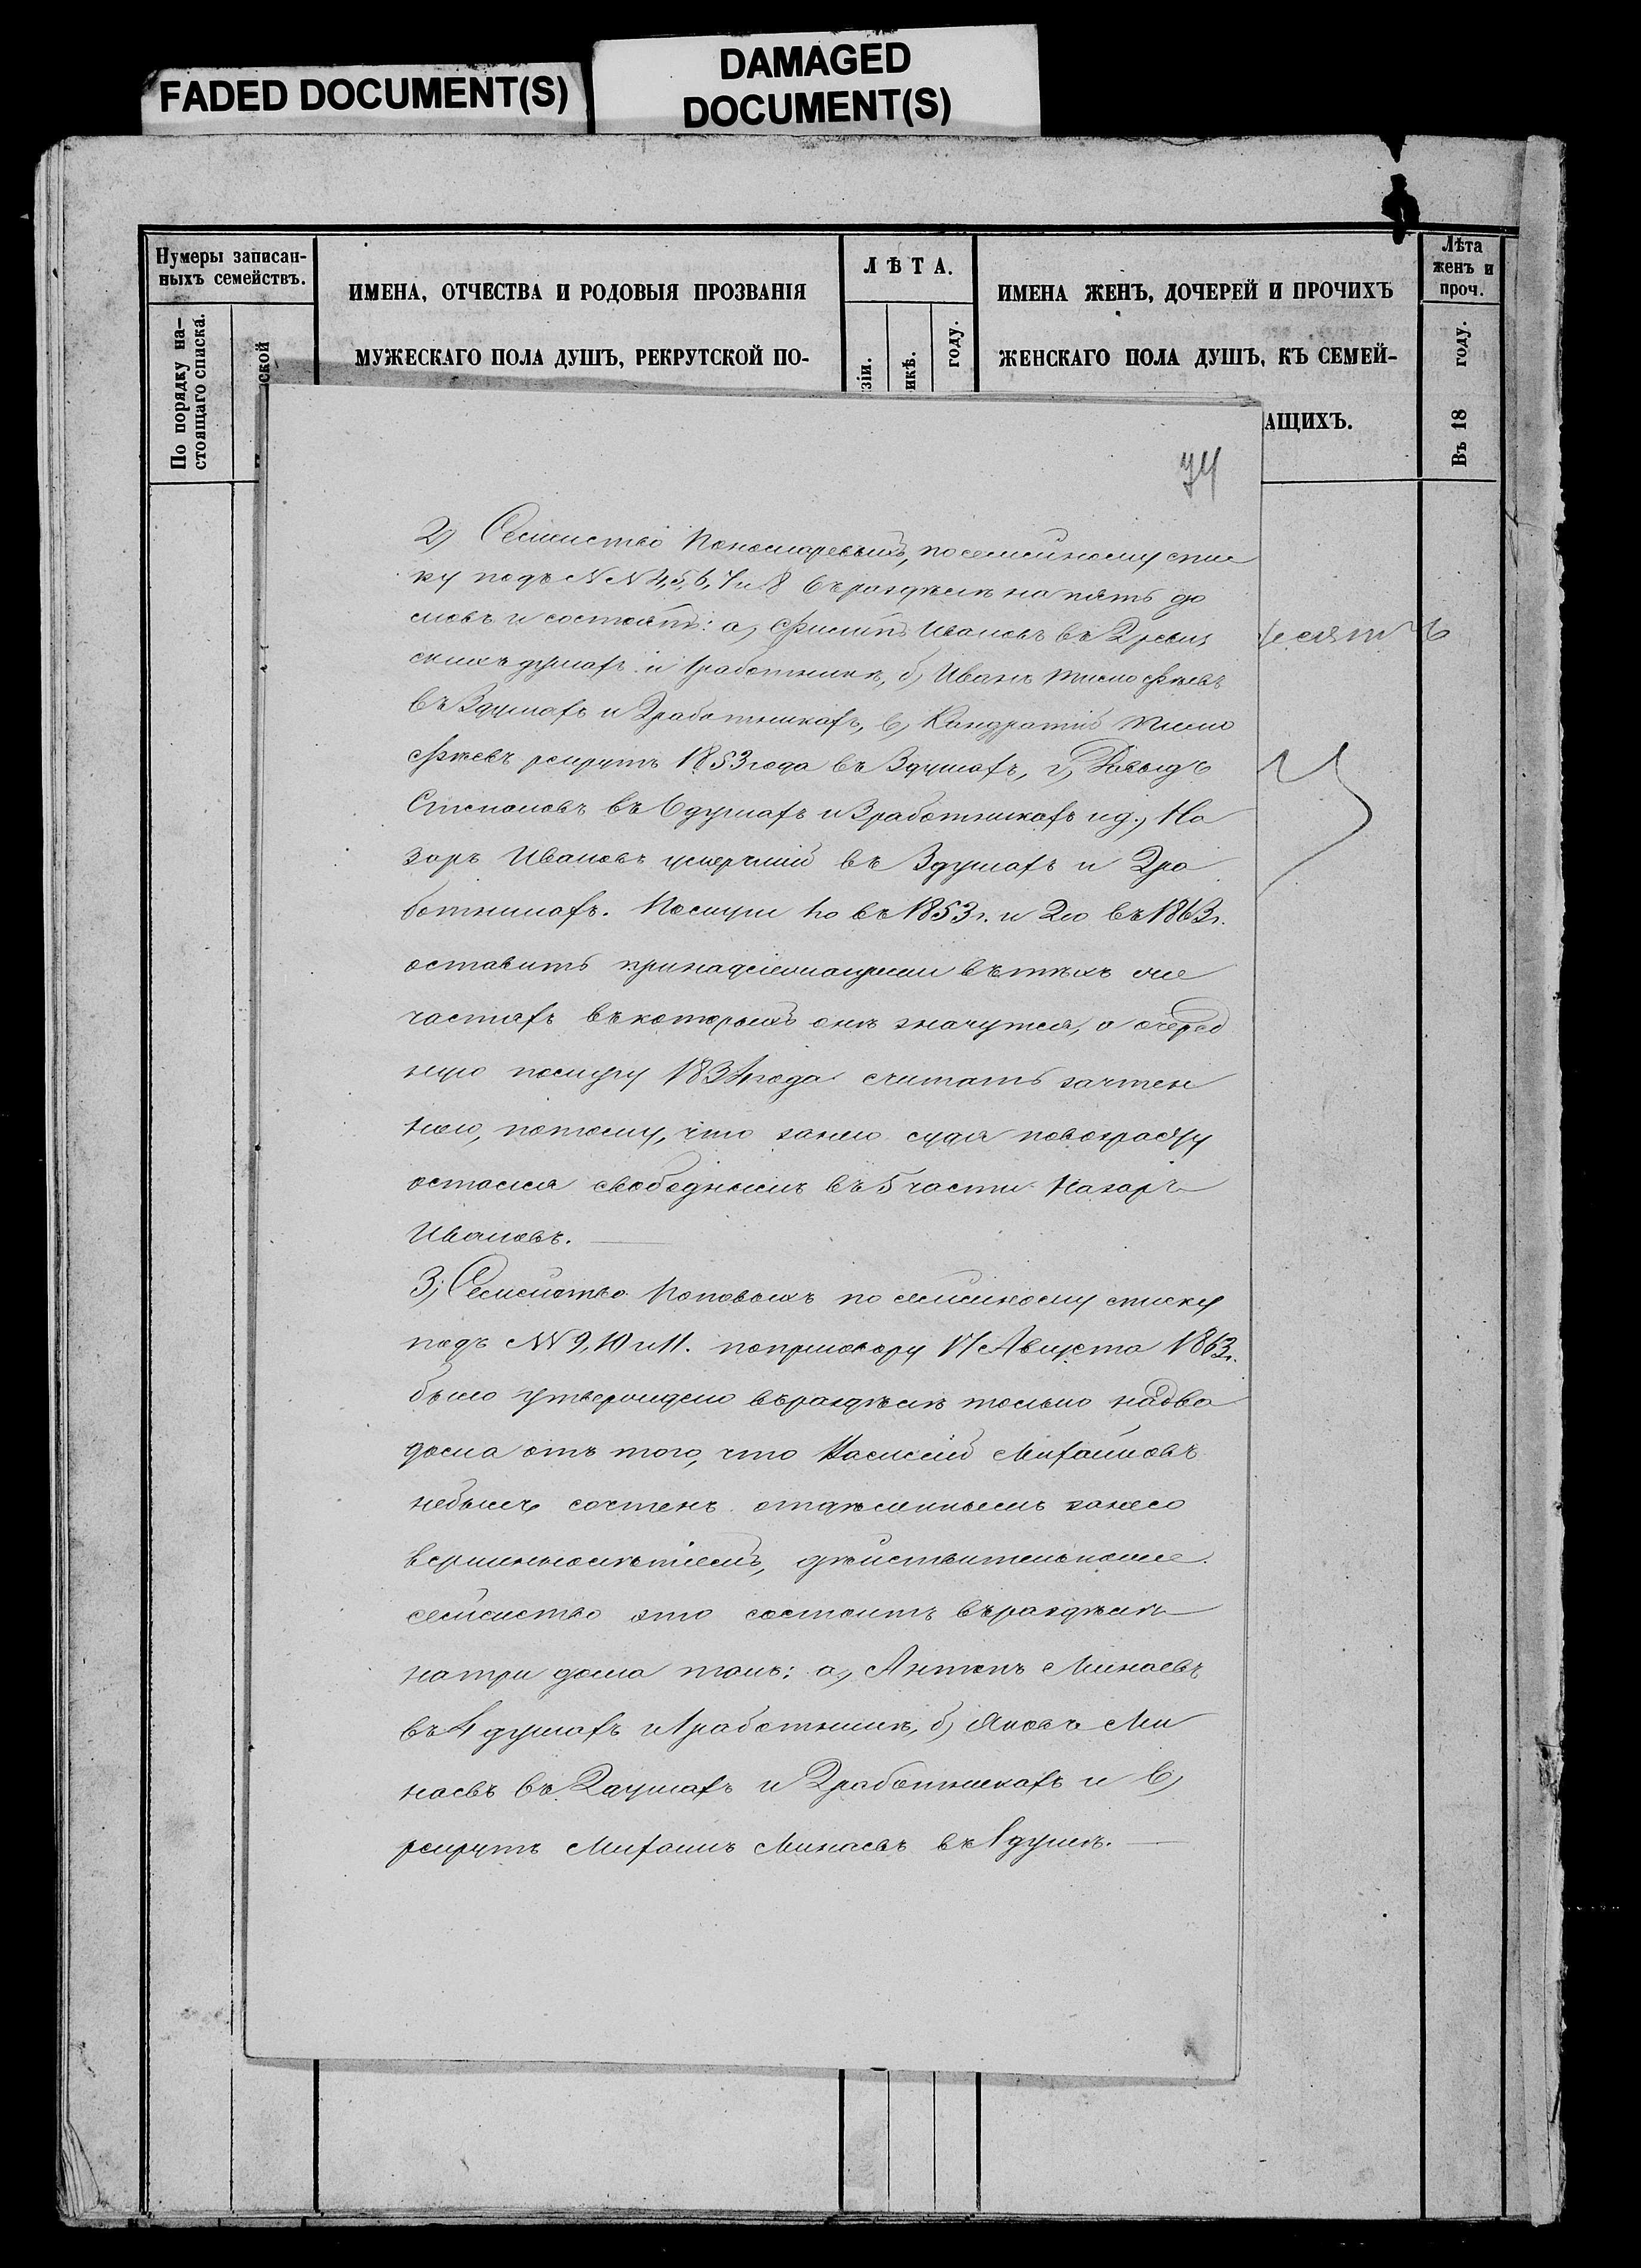 FADED DOCUMENT(S)
DAMAGED
DOCUMENT(S)
Нумеры записан-
ныхъ семействъ.
По порядку на-
стоящаго списка.
ской
ИМЕНА, ОТЧЕСТВА И РОДОВЫЯ ПРОЗВАНІЯ
МУЖЕСКАГО ПОЛА ДУШЪ, РЕКРУТСКОЙ ПО-
ЛѢТА.
зіи.
икѣ.
году.
ИМЕНА ЖЕНЪ, ДОЧЕРЕЙ И ПРОЧИХЪ
ЖЕНСКАГО ПОЛА ДУШЪ, КЪ СЕМЕЙ-
АЩИХЪ.
Лѣта
женъ и
проч.
Въ 18 году.
74
2) Семейство Пономаревыхъ, по семейному спи
ску подъ NN 4, 5, 6, 7 и 8 въ раздѣлѣ на пять до
мовъ и состоятъ: а, Филипъ Ивановъ въ 2 ревиз
скихъ душахъ и 1 работникѣ, б, Иванъ Тимофѣевъ
въ 3 душахъ и 2 работникахъ, в, Кандратій Тимо
фѣевъ рекрутъ 1853 года въ 3 душахъ, г, Давыдъ
Степановъ въ 6 душахъ и 3 работникахъ и д., На
заръ Ивановъ умершій въ 3 душахъ и 2 ра
ботникахъ. Послуги 1ю въ 1853 г. и 2ю въ 1863 г.
оставить принадлежащими въ тѣхъ же
частяхъ въ которыхъ онѣ значутся, а очеред
ную послугу 1834 года считать зачтен
ною, потому, что за нею судя по возрасту
остался свободнымъ въ 5 части Назаръ
Ивановъ.
3, Семейство Поповыхъ по семейному списку
подъ NN 9, 10 и 11. по приговору 17 Августа 1863 г.
было утверждено въ раздѣлѣ только на два
дома отъ того, что Василій Михайловъ
небылъ сочтенъ отдѣленнымъ за несо
вершеннолѣтіемъ, дѣйствительноже
семейство это состоитъ въ раздѣлѣ
на три дома такъ: а, Антонъ Минаевъ
въ 4 душахъ и 1 работникѣ, б, Яковъ Ми
наевъ въ 2 душахъ и 2 работникахъ и в,
рекрутъ Михаилъ Минаевъ въ 1 душѣ.